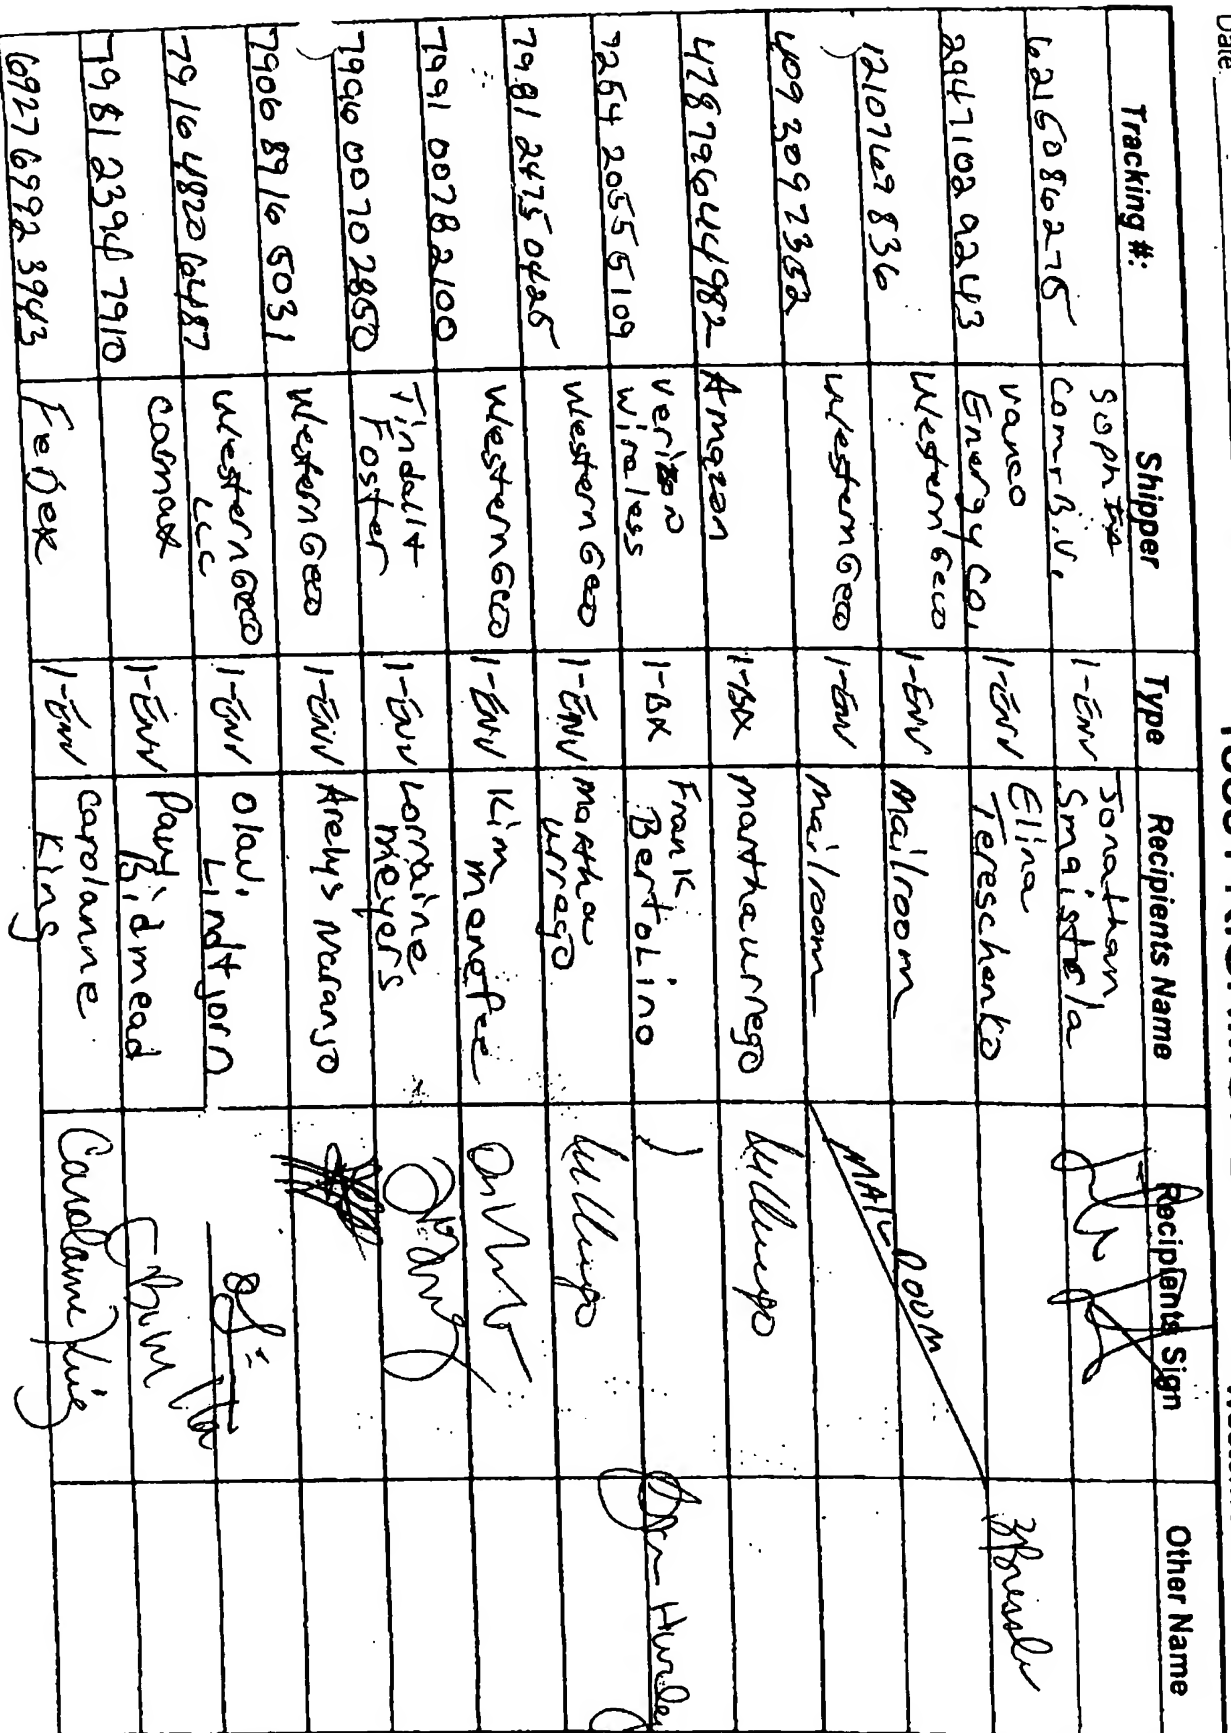 Date:
Tracking #: Shipper Type Recipients Name Recipients Sign Other Name
6215086275 Comr B.V. 1-Env Jonathan Smaistrla
29471020243 Vanco Energy Co. 1-Env Elina Tereschenko
1210769836 WesternGeco 1-Env Mailroom
4093097 2352 WesternGeco 1-Env mailroom MAIL ROOM
478796044982 Amazon 1-BX marthaurrego
7254 2055 5109 verizon wireless 1-BX Frank BertoLino
7981 2475 0425 WesternGeco 1-Env martha urrego
7991 0078 2100 WesternGeco 1-Env Kim menefee
7996 0070 2850 Tindall+ Foster 1-Env Lorraine meyers
7906 8916 5031 WesternGeco 1-Env Arelys Naranjo
7916 4820 6487 WesternGeco LLC 1-Env Olav. Lindtjorn
7981 2394 7910 1-Env Paul Bidmead
6927 6992 3943 FeDex 1-Env carolanne King Carolanne King